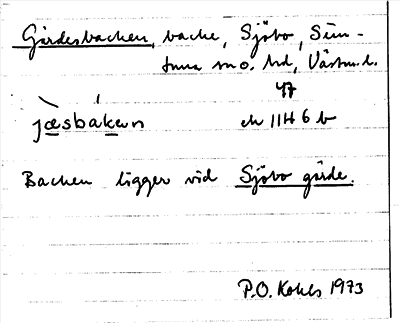 Gärdesbacken, backe, Sjöbo, Sim-
tuna sn o. hd, Västm.l.
47
jæsbakɐn ek 11H 6 b
Backen ligger vid Sjöbo gärde.
P.O. Kohls 1973